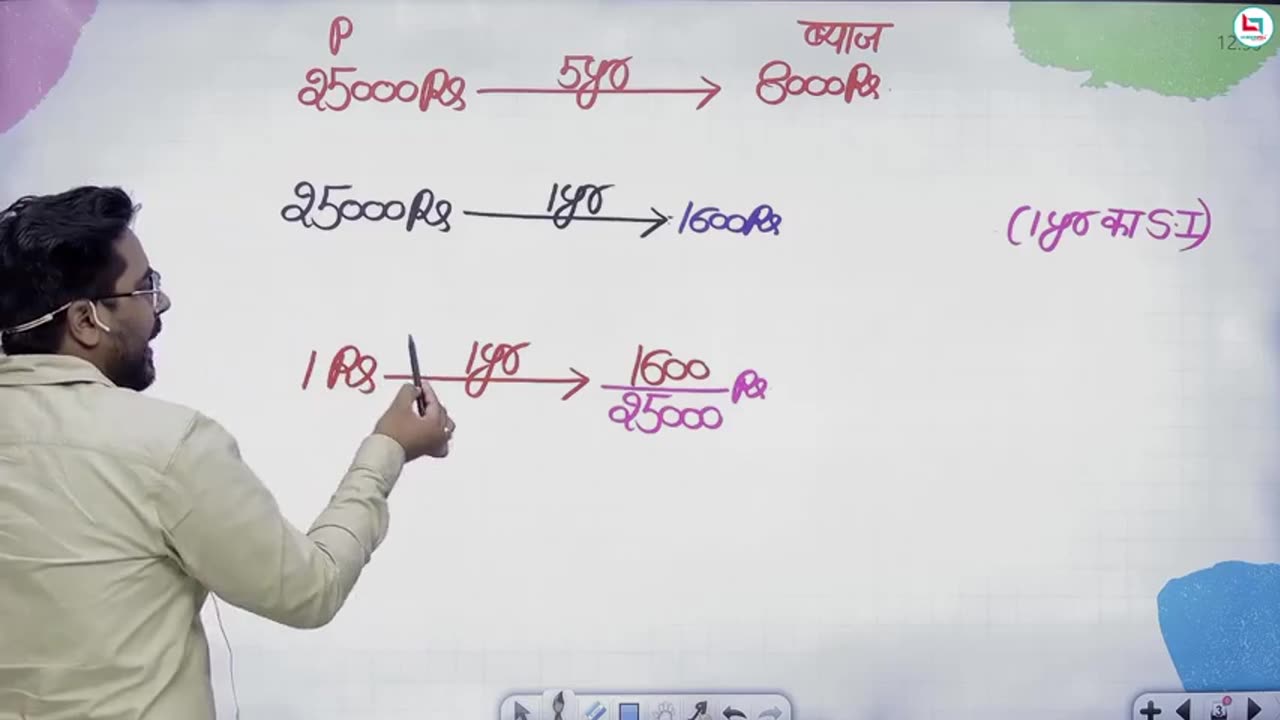 P ब्याज
25000Rs 5yr 8000Rs
25000Rs 1yr 1600Rs (1yr का S.I)
1 Rs 1yr 1600
25000 Rs
3